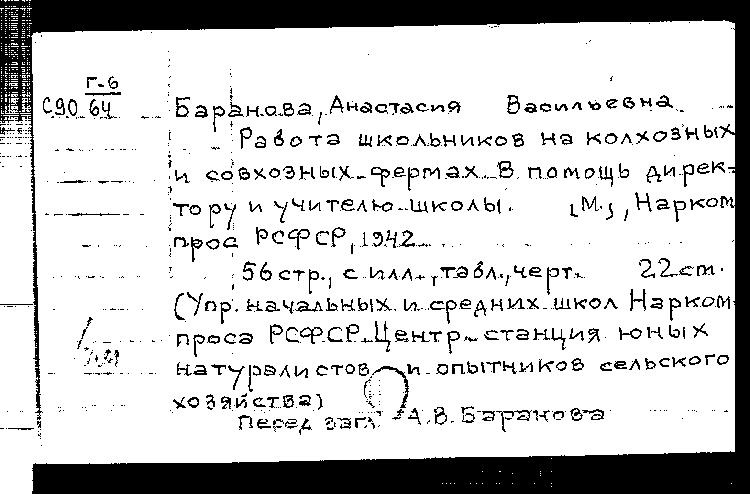 Г-6
С90 64
Баранова, Анастасия Васильевна
Работа школьников на колхозных
и совхозных фермах. В помощь дирек-
тору и учителю школы. [М.], Нарком
прос РСФСР, 1942.
56 стр., с илл., табл., черт. 22 cm.
(Упр. начальных и средних школ Нарком
проса РСФСР. Центр. станция юных
натуралистов и опытников сельского
хозяйства)
Перед загл: А.В. Баранова